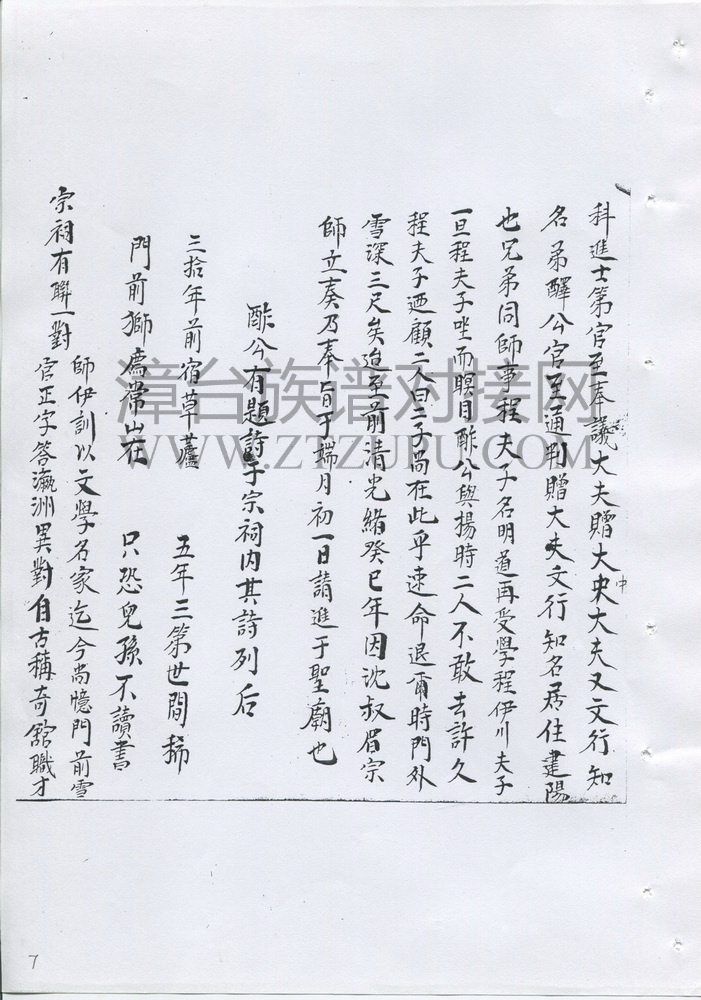 科進士第官至奉議大夫贈大中大夫又文行知
名弟醳公官至通判贈大夫文行知名居住建陽
也兄弟同師事程夫子名明道再受學程伊川夫子
一旦程夫子坐而瞑目酢公與揚時二人不敢去許久
程夫子迺顧二人曰二子尚在此乎速命退爾時門外
雪深三尺矣迨至前清光緒癸巳年因沈叔眉宗
師立奏乃奉旨于端月初一日請進于聖廟也
酢公有題詩于宗祠内其詩列后
三拾年前宿草蘆 五年三第世間稀
門前獅爲常在 只恐兒孫不讀書
宗祠有聯一對
師伊訓以文學名家迄今尚憶門前雪
官正字答瀛洲異對自古稱奇舘職才
漳台族谱对接网
WWW.ZTZUPU.COM
7